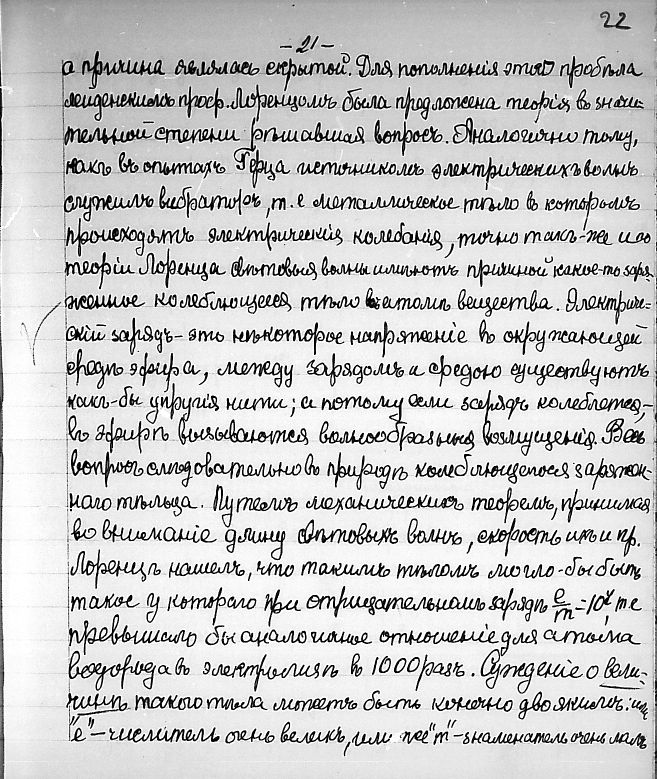 22
– 21 –
а причина являлась скрытой. Для пополненія этого пробѣла
лейденскимъ проф. Лоренцомъ была предложена теорія въ значи-
тельной степени рѣшавшая вопросъ. Аналогично тому,
какъ въ опытахъ Герца источникомъ электрическихъ волнъ
служилъ вибраторъ, т.е металлическое тѣло въ которомъ
происходятъ электрическія колебанія, точно такъ-же и по
теоріи Лоренца свѣтовыя волны имѣютъ причиной какое-то заря-
женное колеблющееся тѣло въ атомѣ вещества. Электриче-
скій зарядъ – это нѣкоторое напряженіе въ окружающей
средѣ эфира, между зарядомъ и средою существуютъ
какъ-бы упругія нити; а потому если зарядъ колеблется, –
въ эфирѣ вызываются волнообразныя возмущенія. Весь
вопросъ слѣдовательно въ природѣ колеблющегося заряжен-
наго тѣльца. Путемъ механическихъ теоремъ, принимая
во вниманіе длину свѣтовыхъ волнъ, скорость ихъ и пр.
Лоренцъ нашелъ, что такимъ тѣломъ могло-бы быть
такое у котораго при отрицательномъ зарядѣ e/m = 10⁷ т е
превышало бы аналогичное отношеніе для атома
водорода въ электролизѣ въ 1000 разъ. Сужденіе о вели-
чинѣ такого тѣла можетъ быть конечно двоякимъ: или
"e" – числитель очень великъ, или же "m" – знаменатель очень малъ